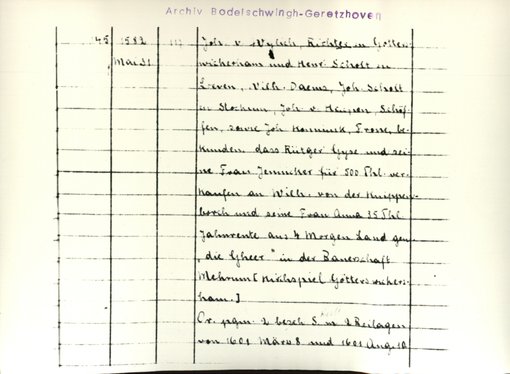 Archiv Bodelschwingh-Geretzhoven
145 1582 Joh. v. Wylich, Richter in Götters-
Mai 31 wickerham und Henr. Scholt in
Eeven, Wilh. Daems, Joh. Scholt
in Stockum, Joh. v. Heysen, Schöf-
fen, sowie Joh. Frone, be-
kunden dass Rütger Gyse und sei-
ne Frau Jenneker für 500 Thl. ver-
kaufen an Wilh. von der Knippen-
borch und seine Frau Anna 25 Thl.
Jahrrente aus 4 Morgen Land gen.
„die Gheer" in der Bauerschaft
Mehrum [Kirchspiel Götterswickers-
ham.]
Or. pgm. 2 besch. S. m. 2 Beilagen
von 1601 März 8 und 1601 Aug. 10